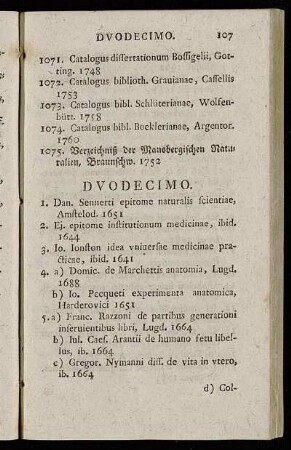 DVODECIMO. 107
1071. Catalogus dissertationum Bossigelii, Got-
ting. 1748
1072. Catalogus biblioth. Grauianae, Cassellis
1753
1073. Catalogus bibl. Schlüterianae, Wolfen-
bütt. 1758
1074. Catalogus bibl. Boeklerianae, Argentor.
1760
1075. Verzeichniß der Mansbergischen Natu-
ralien, Braunschw. 1752
DVODECIMO.
1. Dan. Sennerti epitome naturalis scientiae,
Amstelod. 1651
2. Ej. epitome institutionum medicinae, ibid.
1644
3. Io. Ionston idea vniuersae medicinae pra-
cticae, ibid. 1641
4. a) Domic. de Marchettis anatomia, Lugd.
1688
b) Io. Pecqueti experimenta anatomica,
Harderovici 1651
5. a) Franc. Razzoni de partibus generationi
inseruientibus libri, Lugd. 1664
b) Iul. Caes. Arantii de humano fetu libel-
lus, ib. 1664
c) Gregor. Nymanni diss. de vita in vtero,
ib. 1664
d) Col-